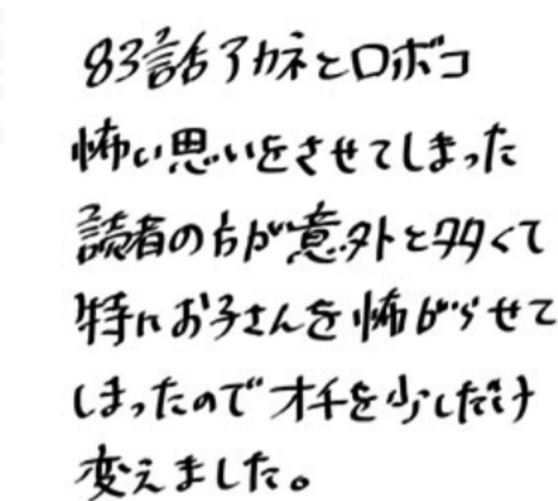 83話アカネとロボコ
怖い思いをさせてしまった
読者の方が意外と多くて
特にお子さんを怖がらせて
しまったのでオチを少しだけ
変えました。